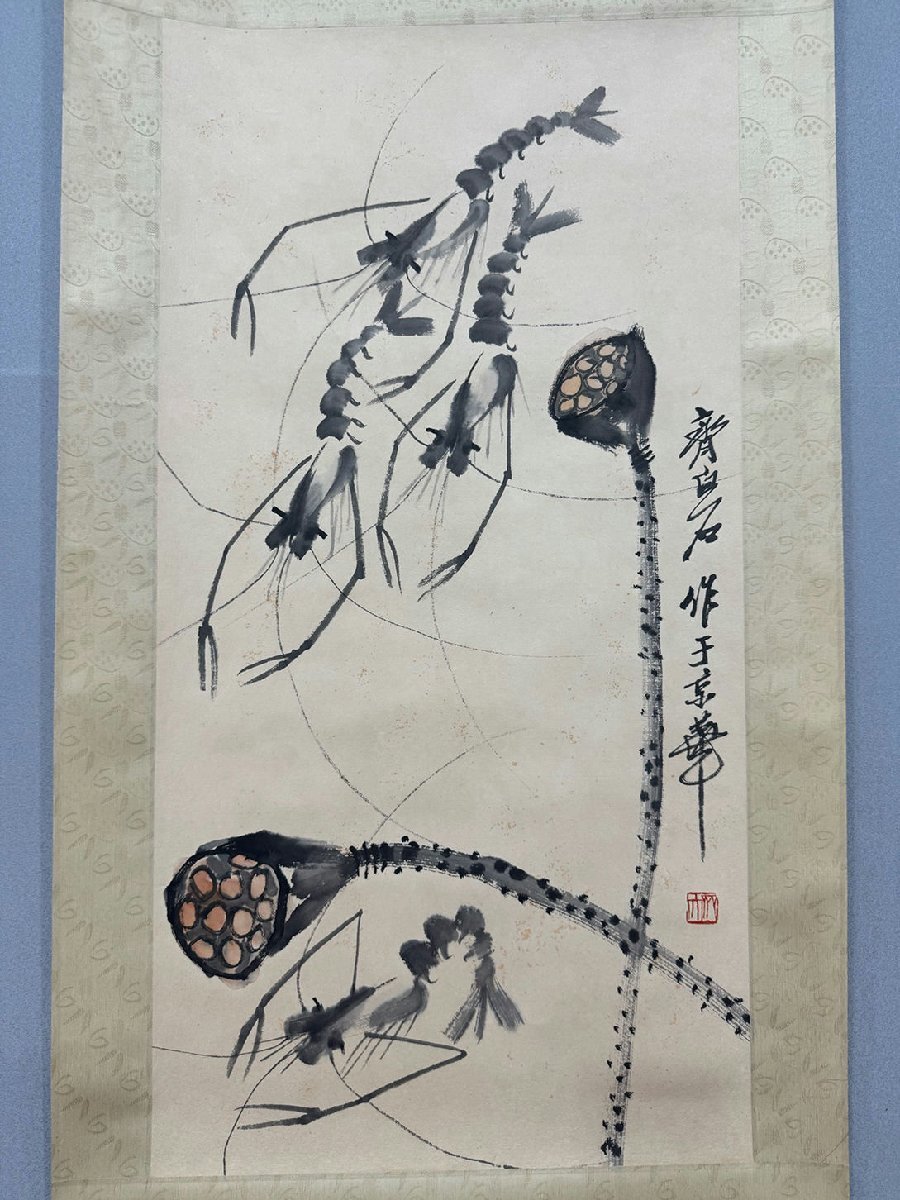 齊白石 作于京華